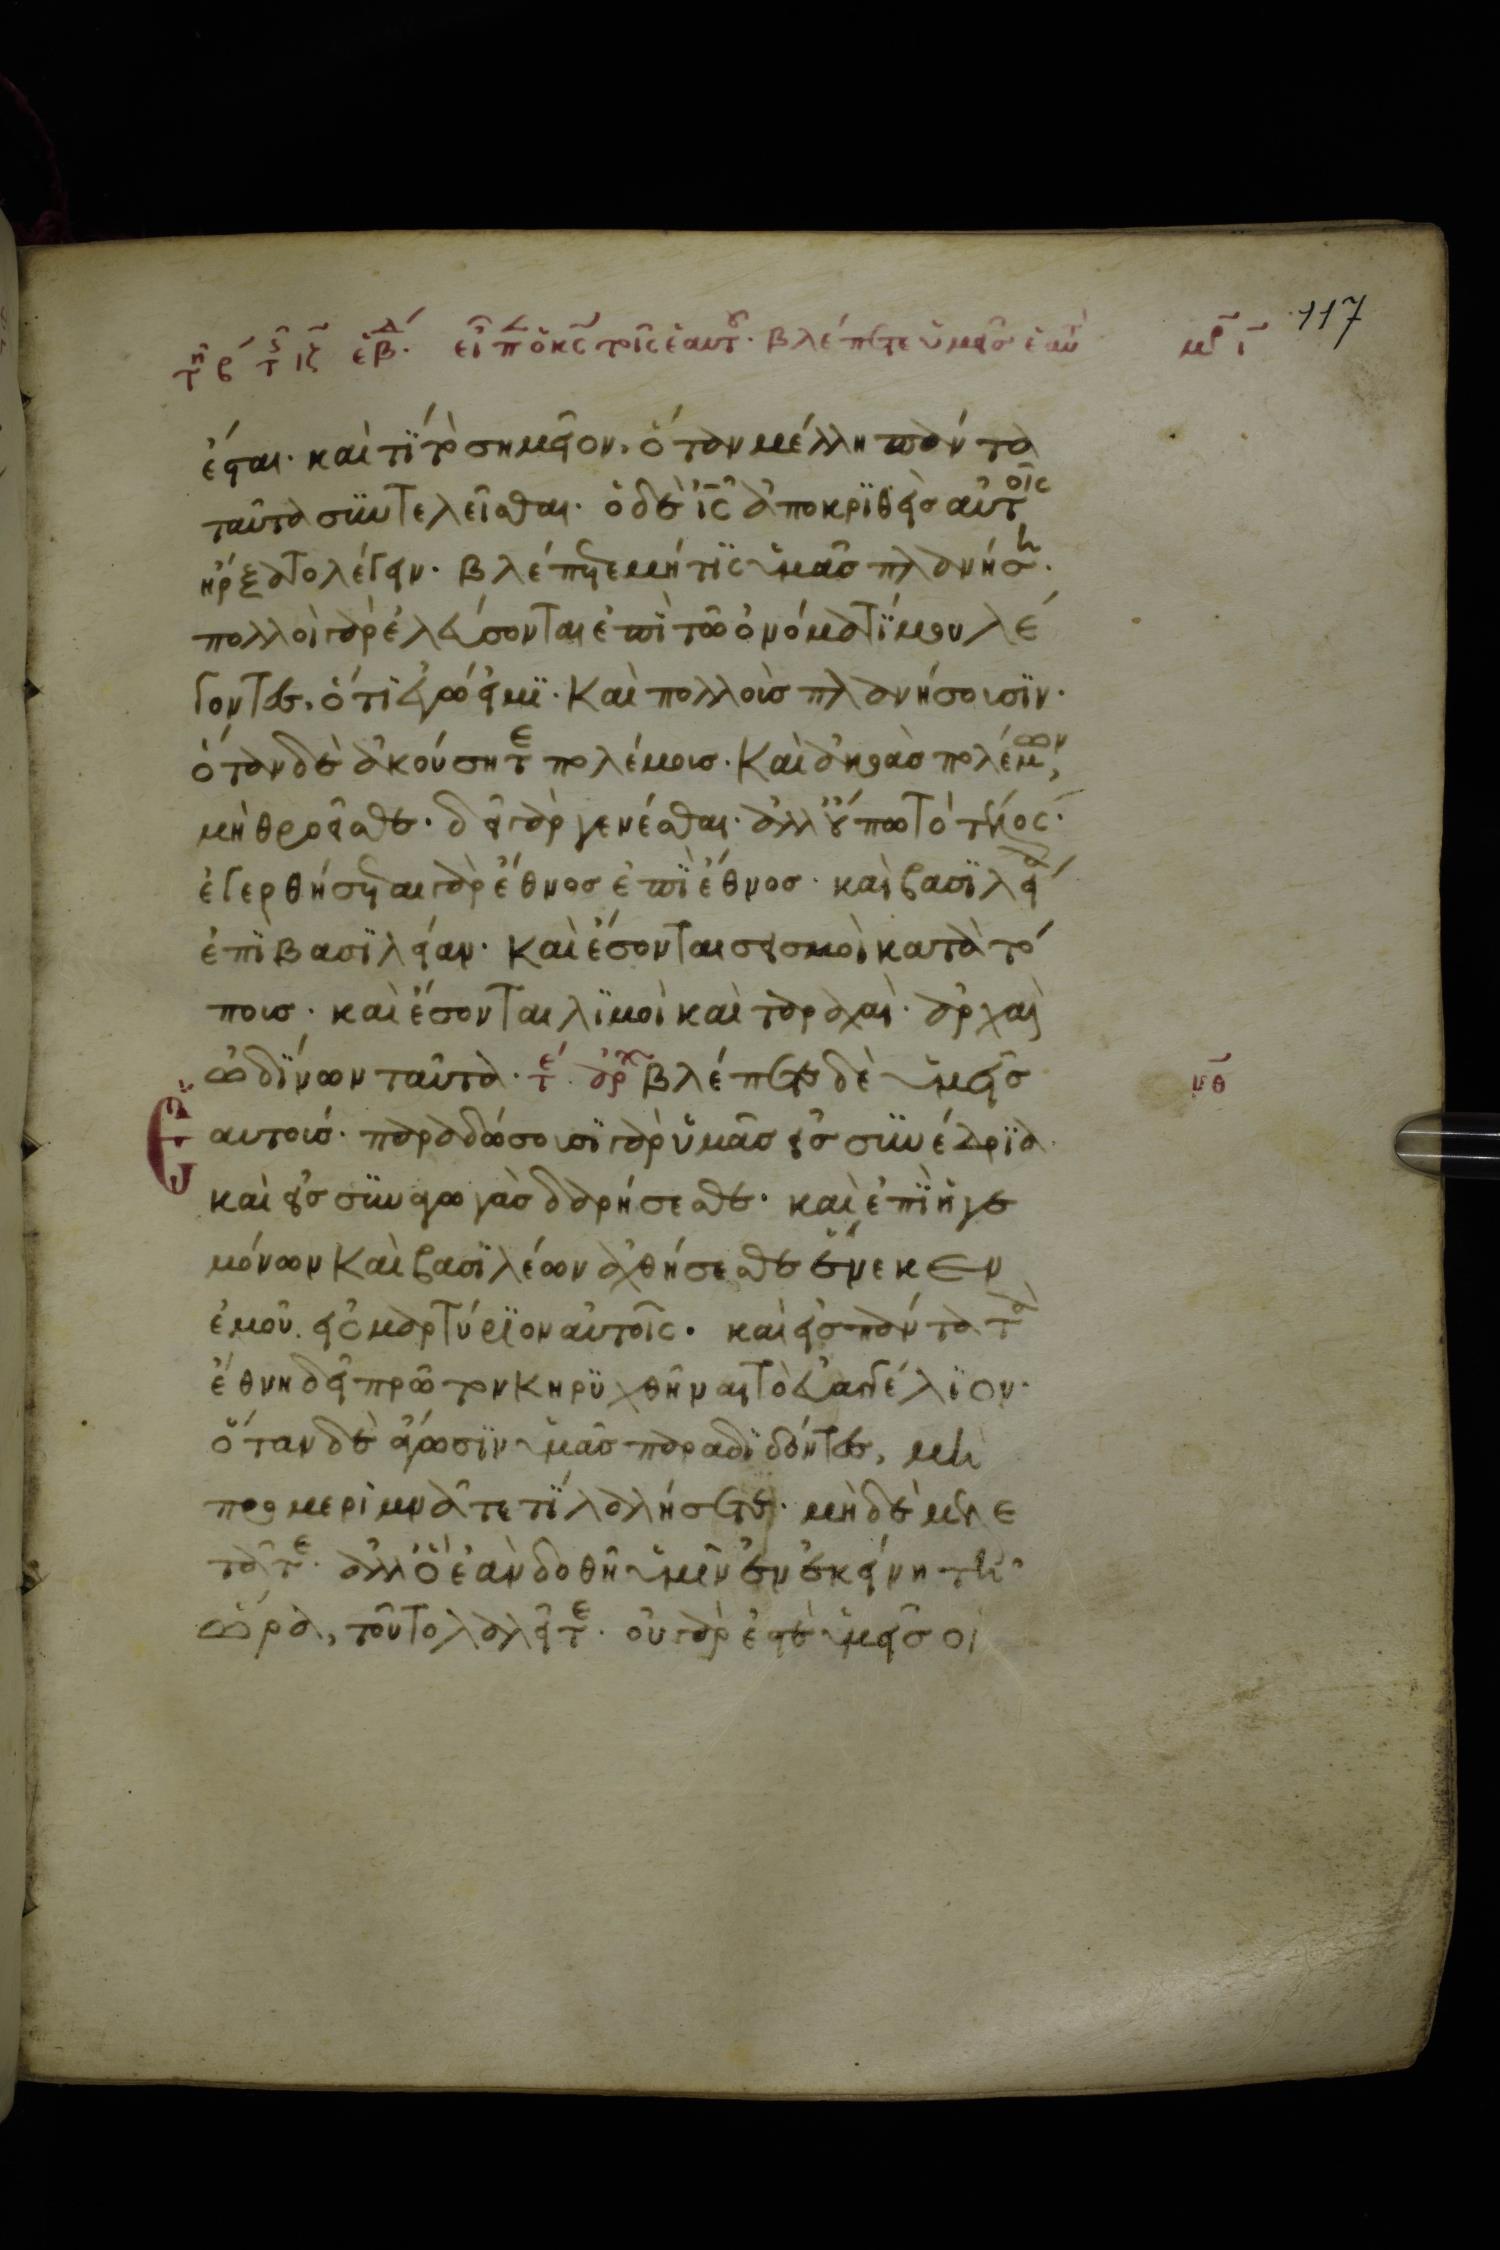 117
τῇ ϛ΄ τῆς ιζ ἑβδ΄. εἶπεν ὁ κς τοῖς ἑαυτοῦ. βλέπετε ὑμεῖς ἑαυ
ἔσται· καὶ τί τὸ σημεῖον, ὅταν μέλλη πάντα
ταῦτα συντελεῖσθαι· ὁ δὲ ις ἀποκριθεὶς αὐτοῖς
ἤρξατο λέγειν· βλέπετε μή τις ὑμᾶς πλανήση·
πολλοὶ γὰρ ἐλεύσονται ἐπὶ τῶ ὀνόματί μου λέ
γοντες, ὅτι ἐγώ εἰμι· καὶ πολλοὺς πλανήσουσιν·
ὅταν δὲ ἀκούσητε πολέμους· καὶ ἀκοὰς πολέμων,
μὴ θροεῖσθε· δεῖ γὰρ γενέσθαι· ἀλλ' οὔπω τὸ τέλος·
ἐγερθήσεται γὰρ ἔθνος ἐπὶ ἔθνος· καὶ βασιλεία
ἐπὶ βασιλείαν· καὶ ἔσονται σεισμοὶ κατὰ τό
πους· καὶ ἔσονται λιμοὶ καὶ ταραχαί· ἀρχαὶ
ὠδίνων ταῦτα· τέ ἀρχ βλέπετε δὲ ὑμεῖς
μθ
ἑαυτούς· παραδώσουσι γὰρ ὑμᾶς εἰς συνέδρια
καὶ εἰς συναγωγὰς δαρήσεσθε· καὶ ἐπὶ ἡγε
μόνων καὶ βασιλέων ἀχθήσεσθε ἕνεκεν
ἐμοῦ εἰς μαρτύριον αὐτοῖς· καὶ εἰς πάντα τὰ
ἔθνη δεῖ πρῶτον κηρυχθῆναι τὸ εὐαγγέλιον·
ὅταν δὲ ἄγωσιν ὑμᾶς παραδιδόντες, μὴ
προμεριμνᾶτε τί λαλήσετε· μὴδὲ μελε
τᾶτε· ἀλλ' ὃ ἐὰν δοθῆ ὑμῖν ἐν ἐκείνη τῆ
ὥρα, τοῦτο λαλεῖτε· οὐ γάρ ἐστε ὑμεῖς οἱ